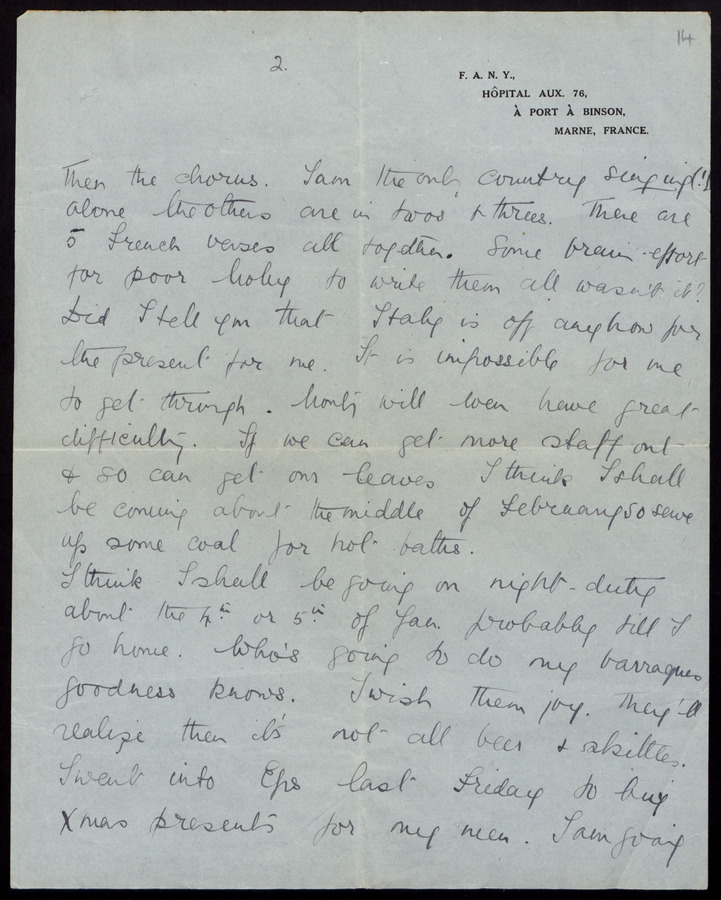 14
2.
F. A. N. Y.,
HÔPITAL AUX. 76,
À PORT À BINSON,
MARNE, FRANCE.
Then the chorus. I am the only country singing (!)
alone the others are in twos & threes. There are
5 French verses all together. Some brain-effort
for poor to write them all wasn't it?
Did I tell you that Italy is off anyhow for
the present for me. It is impossible for me
to get through. will even have great
difficulty. If we can get more staff out
& so can get our leaves I think I shall
be coming about the middle of February so save
up some coal for hot baths.
I think I shall be going on night-duty
about the 4th or 5th of Jan. probably till I
go home. Who's going to do my barraques
goodness knows. I wish them joy. They'll
realise then it's not all beer & skittles.
I went into Eps last Friday to buy
Xmas presents for my men. I am going